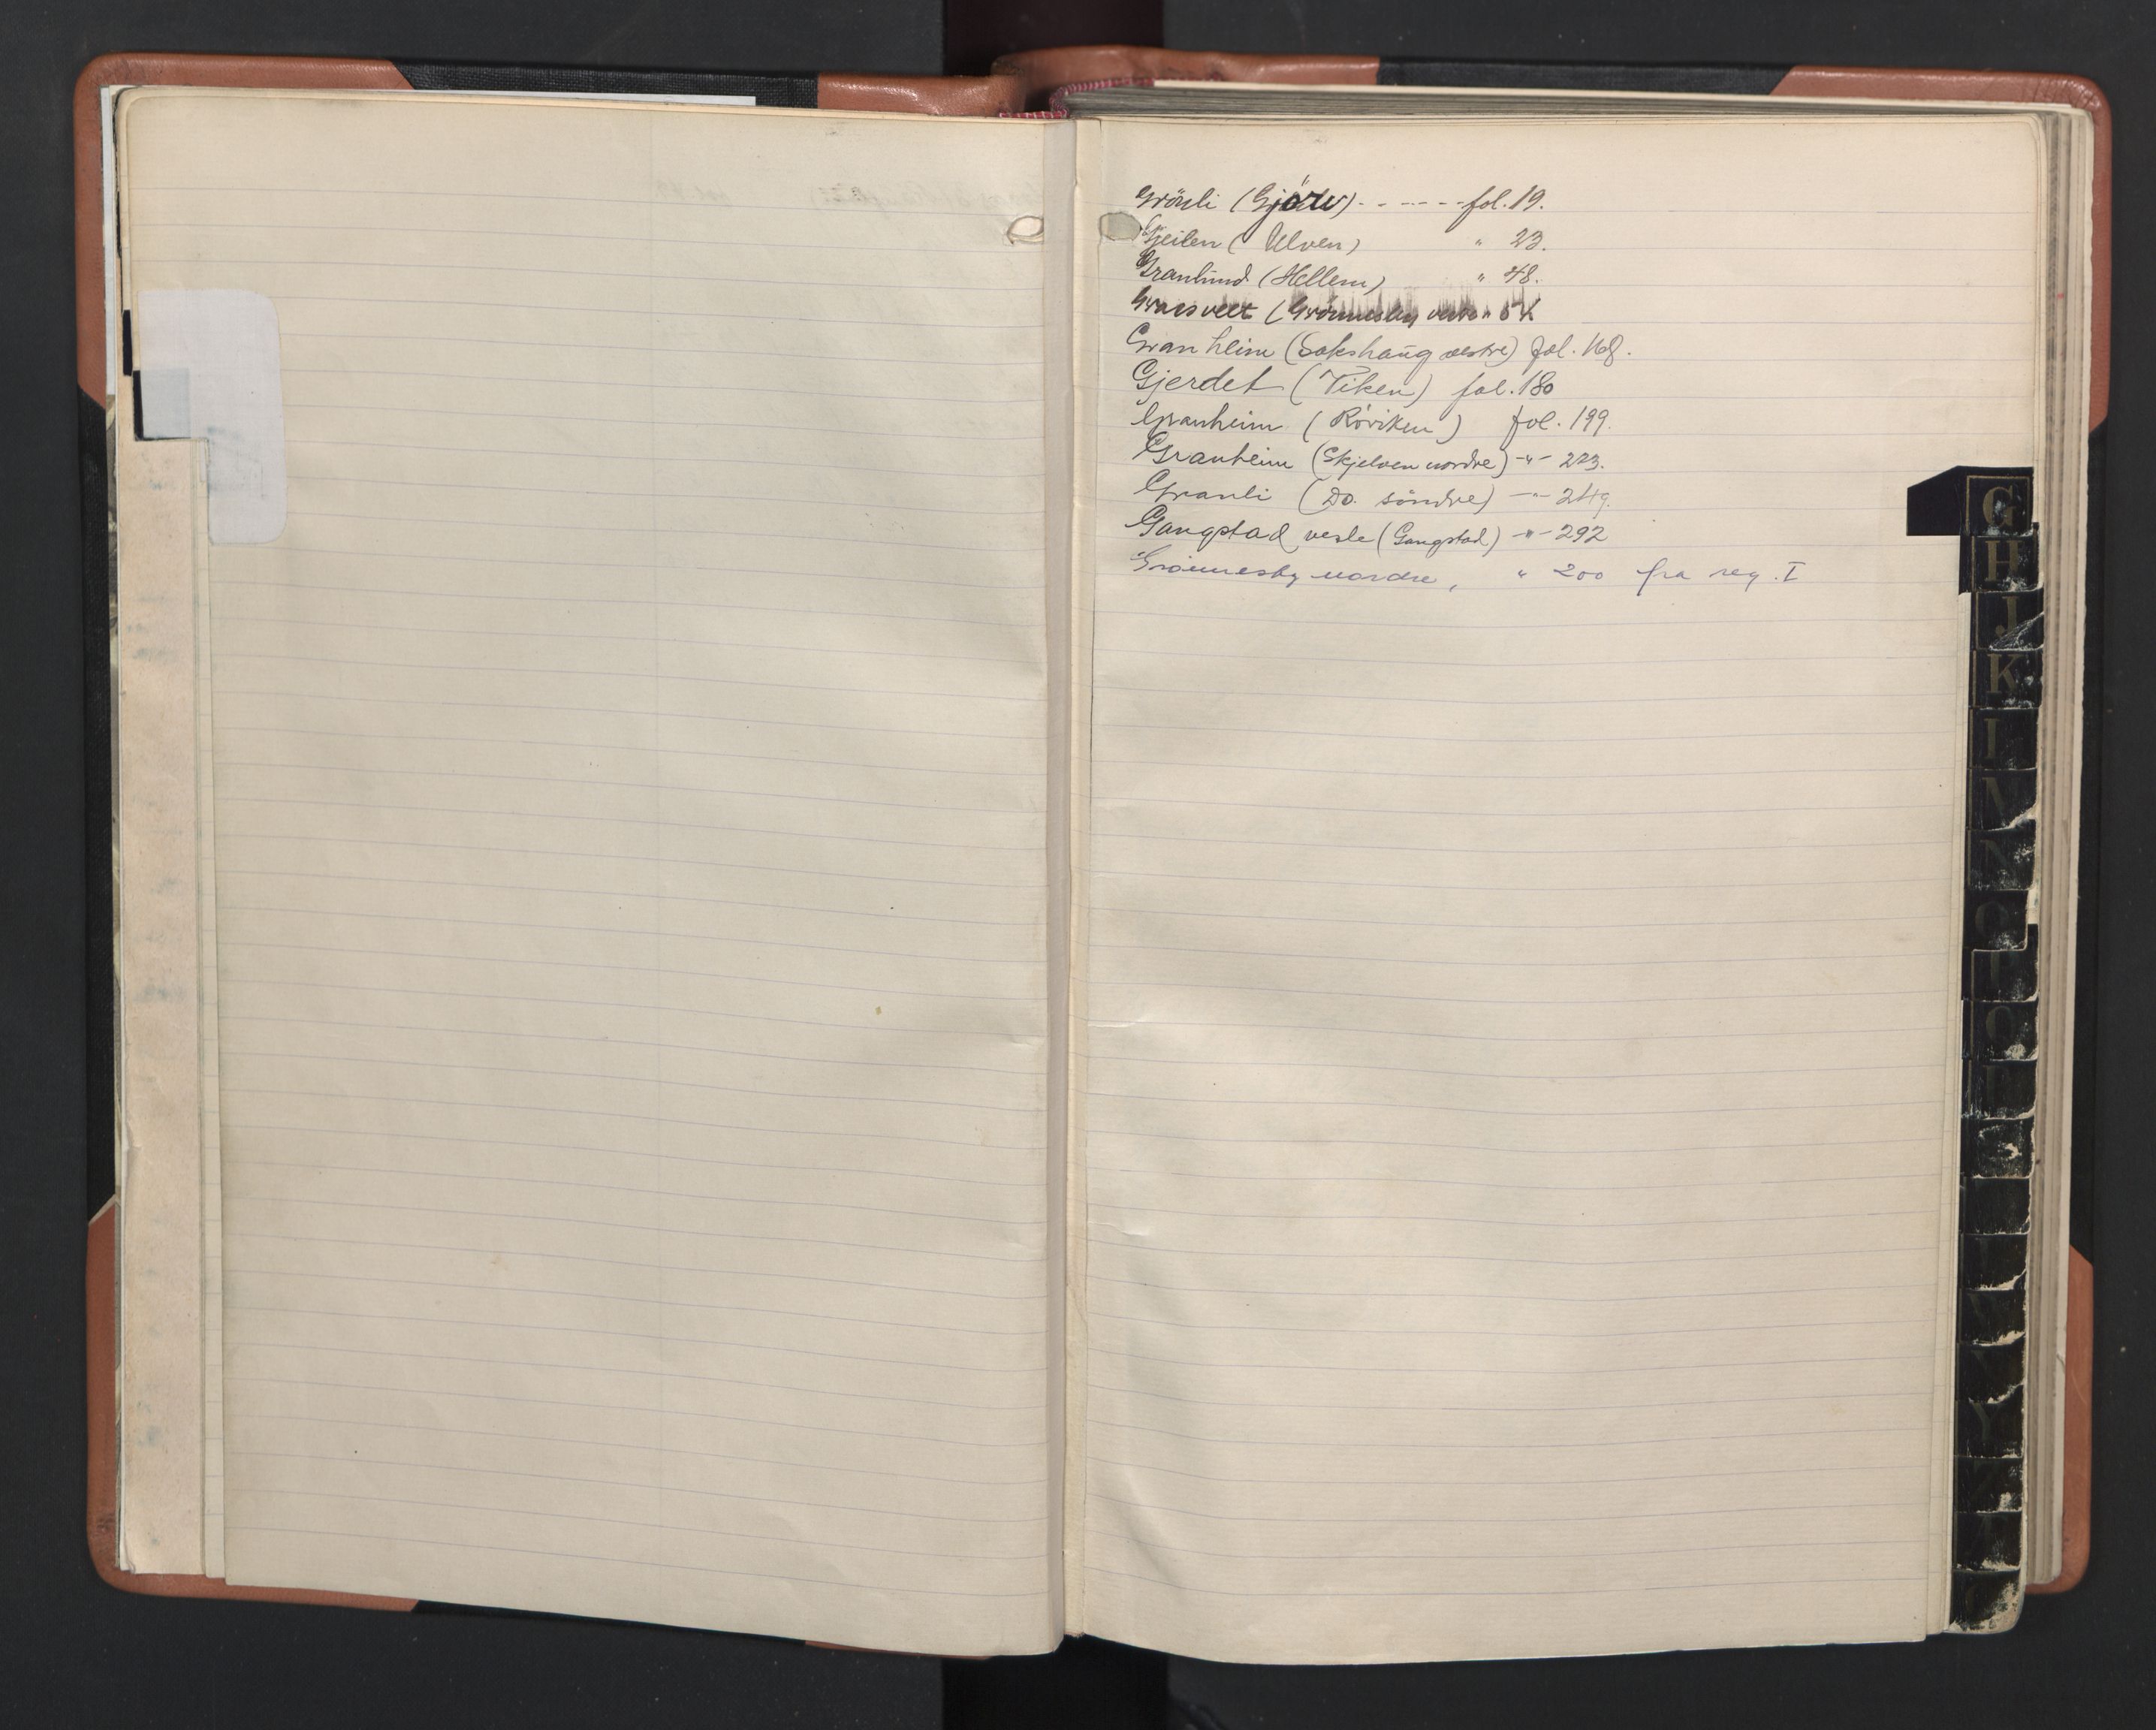 Grönli (Gjörv) - - - - - - fol. 19.
Gjeilen ( Ulven) " 23.
Granlund (Hellem) " 48.
(Grönnesby "
Granheim (Sakshaug vestre) fol. 168.
Gjerdet (Viken) fol. 180
Granheim (Röviken) fol. 199.
Granheim (Skjelven nordre) -"- 223.
Granli (Do. söndre) -"- 249.
Gangstad vesle (Gangstad) -"- 292
Grönnesby nordre, " 200 fra reg. I
G
H
J
K
N